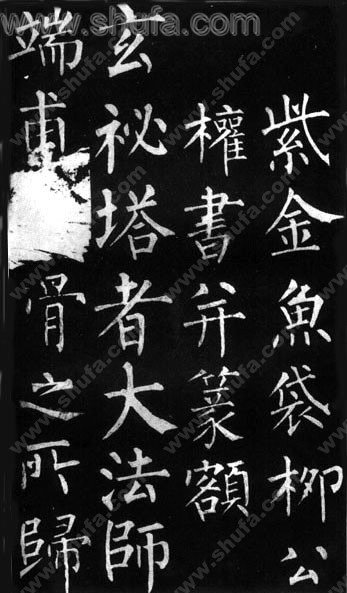 www.shufa.com
紫金魚袋柳公
權書并篆額
玄祕塔者大法師
端甫骨之所歸